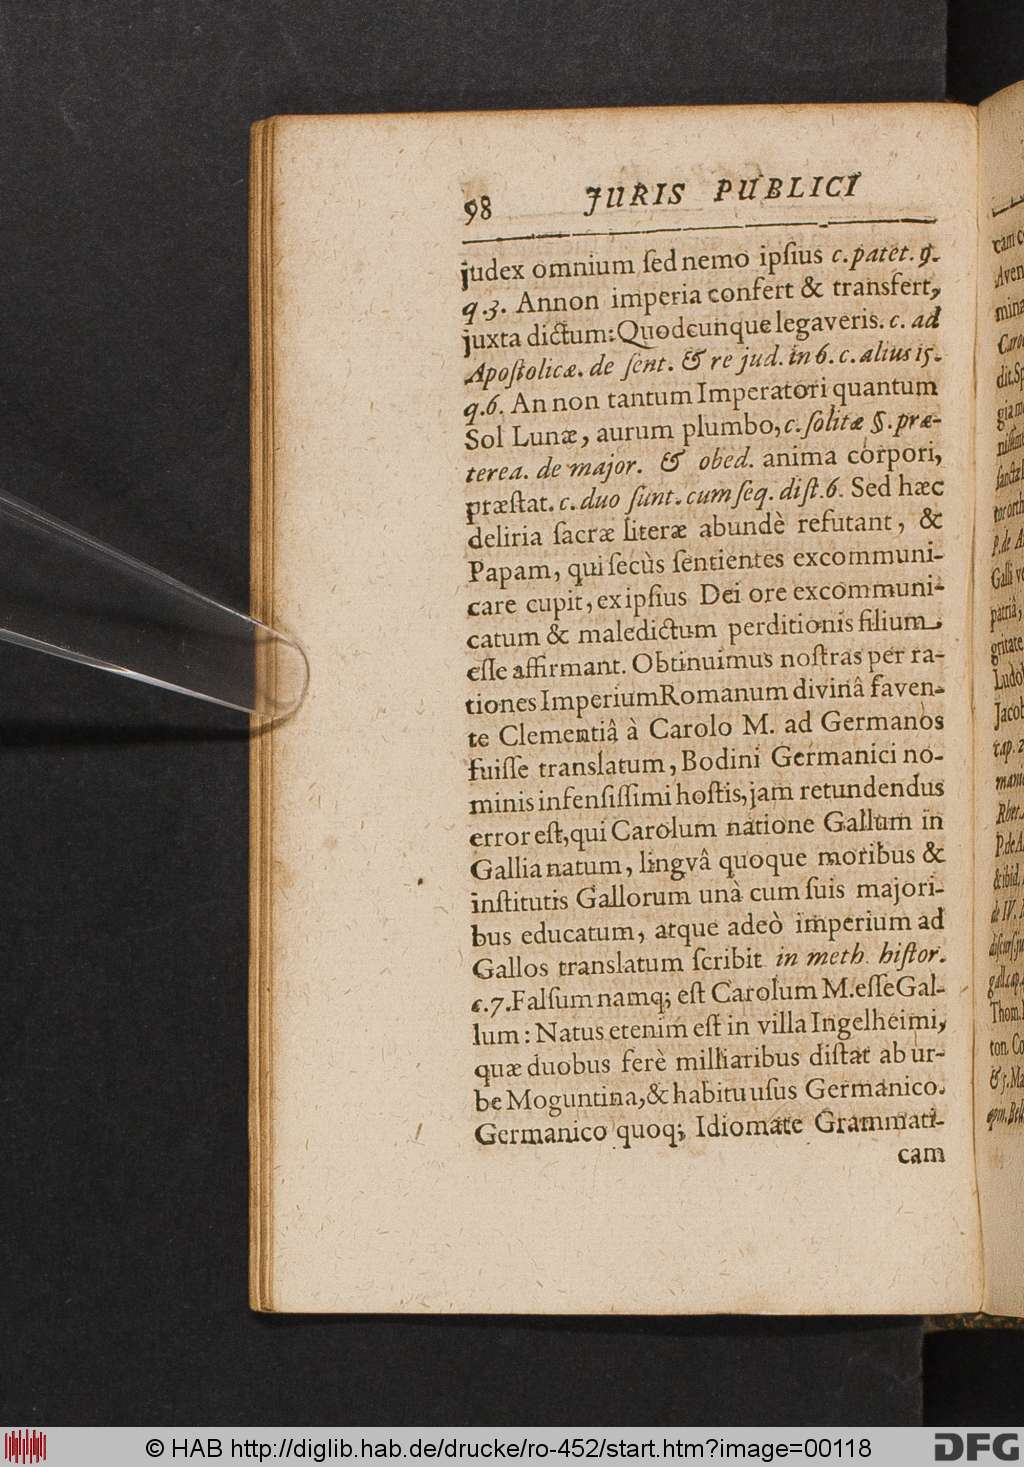 98 JURIS PUBLICI
judex omnium ſed nemo ipſius c. patet. 9.
q. 3. Annon imperia confert & transfert,
juxta dictum: Quodcunque legaveris. c. ad
Apoſtolicæ. de ſent. & re jud. in 6. c. alius 15.
q. 6. An non tantum Imperatori quantum
Sol Lunæ, aurum plumbo, c. ſolitæ §. præ-
terea. de major. & obed. anima corpori,
præſtat. c. duo ſunt. cum ſeq. diſt. 6. Sed hæc
deliria ſacræ literæ abundè refutant, &
Papam, qui ſecùs ſentientes excommuni-
care cupit, ex ipſius Dei ore excommuni-
catum & maledictum perditionis filium,
eſſe affirmant. Obtinuimus noſtras per ra-
tiones Imperium Romanum divinâ faven-
te Clementiâ à Carolo M. ad Germanos
fuiſſe translatum, Bodini Germanici no-
minis infenſiſſimi hoſtis, jam retundendus
error eſt, qui Carolum natione Gallum in
Gallia natum, lingvâ quoque moribus &
inſtitutis Gallorum unà cum ſuis majori-
bus educatum, atque adeò imperium ad
Gallos translatum ſcribit in meth. hiſtor.
c. 7. Falſum namq; eſt Carolum M. eſſe Gal-
lum: Natus etenim eſt in villa Ingelheimi,
quæ duobus ferè milliaribus diſtat ab ur-
be Moguntina, & habitu uſus Germanico.
Germanico quoq; Idiomate Grammati-
cam
© HAB http://diglib.hab.de/drucke/ro-452/start.htm?image=00118
DFG